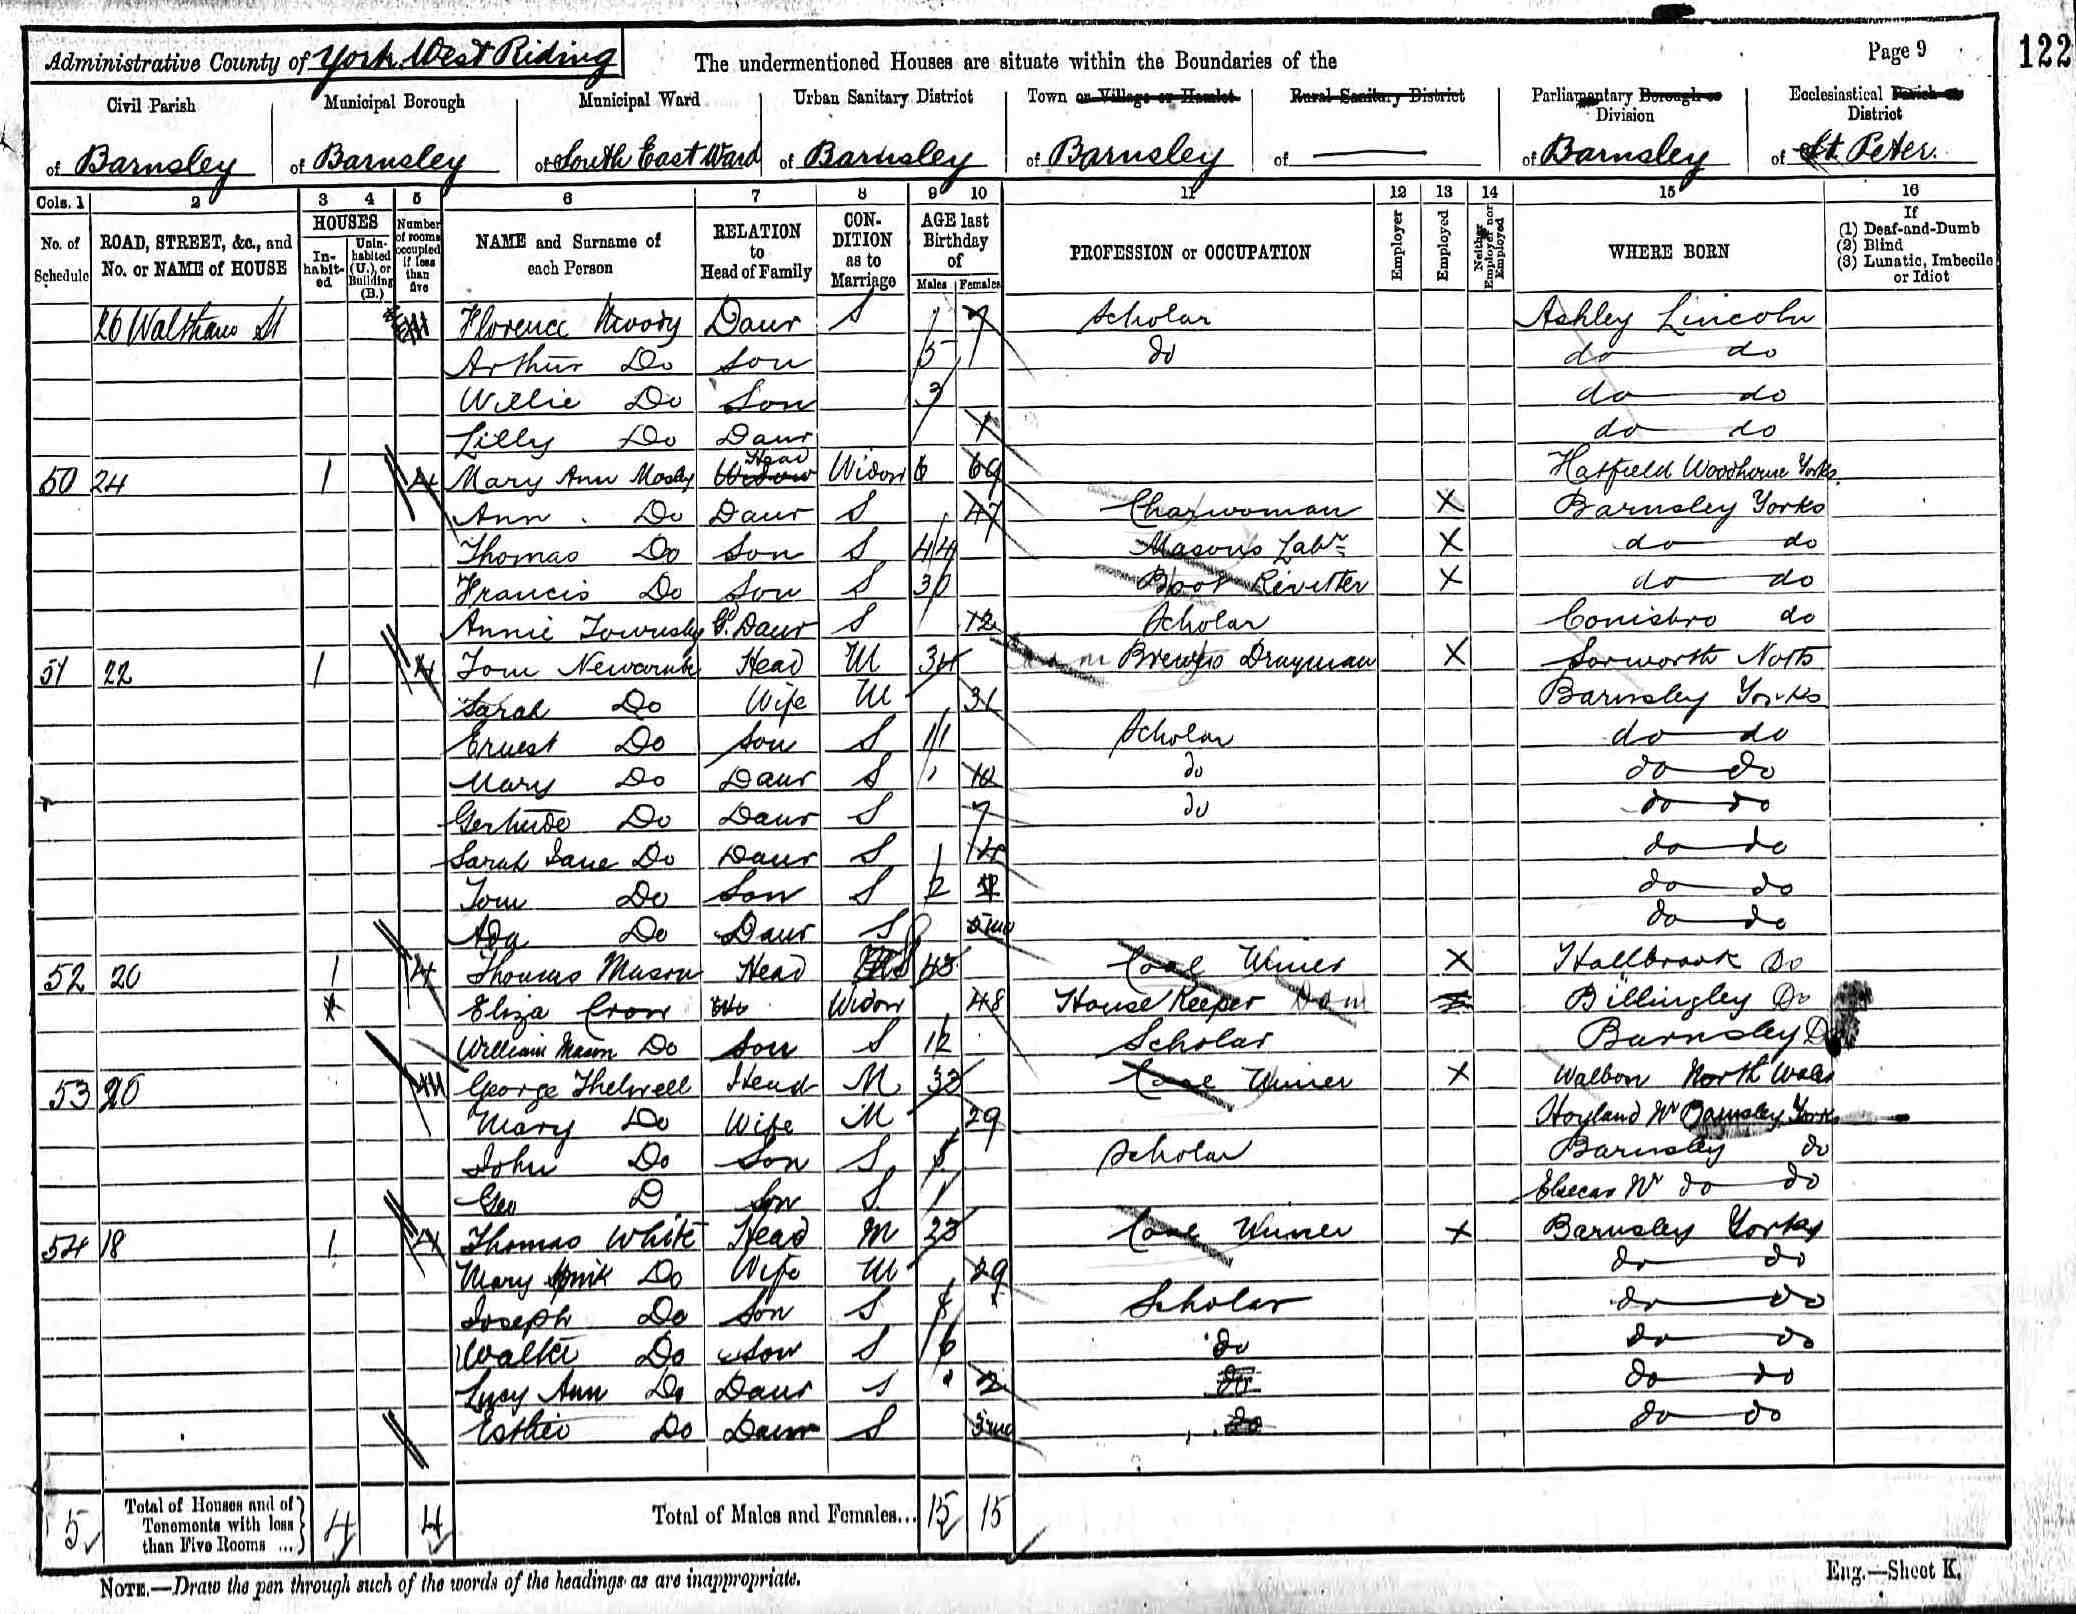 Administrative County of York West Riding The undermentioned Houses are situate within the Boundaries of the Page 9 122
Civil Parish Municipal Borough Municipal Ward Urban Sanitary District Town or Village or Hamlet Rural Sanitary District Parliamentary Borough or Division Ecclesiastical Parish or District
of Barnsley of Barnsley of South East Ward of Barnsley of Barnsley of — of Barnsley of St. Peter.
Cols. 1 2 3 4 5 6 7 8 9 10 11 12 13 14 15 16
No. of Schedule ROAD, STREET, &c., and No. or NAME of HOUSE HOUSES Inhabited Uninhabited (U.), or Building (B.) Number of rooms occupied if less than five NAME and Surname of each Person RELATION to Head of Family CONDITION as to Marriage AGE last Birthday of Males Females PROFESSION or OCCUPATION Employer Employed Neither Employer nor Employed WHERE BORN If (1) Deaf-and-Dumb (2) Blind (3) Lunatic, Imbecile or Idiot
26 Waltham St Florence Moody Daur S 7 Scholar Ashley Lincoln
Arthur Do Son 5 do do do
Willie Do Son 3 do do
Lilly Do Daur 1 do do
50 24 1 4 Mary Ann Mosby Widow Head Widow 69 Hatfield Woodhouse Yorks.
Ann Do Daur S 47 Charwoman X Barnsley Yorks
Thomas Do Son S 44 Masons Labr X do do
Francis Do Son S 30 Boot Rivetter X do do
Annie Townsley Gd. Daur S 12 Scholar Conisbro do
51 22 1 4 Tom Newark Head M 34 Brewers Drayman X Notts
Sarah Do Wife M 31 Barnsley Yorks
Ernest Do Son S 11 Scholar do do
Mary Do Daur S 10 do do do
Gertrude Do Daur S 7 do do do
Sarah Jane Do Daur S 4 do do
Tom Do Son S 2 do do
Ada Do Daur S 5 mo do do
52 20 1 4 Thomas Mason Head S 43 Coal Miner X Hallbrook Do
Eliza Crow Widow 48 House Keeper Dom X Billingley Do
William Mason Do Son S 12 Scholar Barnsley Do
53 20 George Thelwell Head M 33 Coal Miner X Walbon North Wales
Mary Do Wife M 29 Hoyland Nr Barnsley Yorks
John Do Son S Scholar Barnsley do
Geo D Son S 1 Elsecar Nr do do
54 18 1 4 Thomas White Head M Coal Miner X Barnsley Yorks
Mary Do Wife M 29 do do
Joseph Do Son S 8 Scholar do do
Walter Do Son S 6 do do do
Lucy Ann Do Daur S 2 do do do
Esther Do Daur S 3 mo do do do
5 Total of Houses and of Tenements with less than Five Rooms ... 4 4 Total of Males and Females... 15 15
NOTE.—Draw the pen through such of the words of the headings as are inappropriate. Eng.—Sheet K.